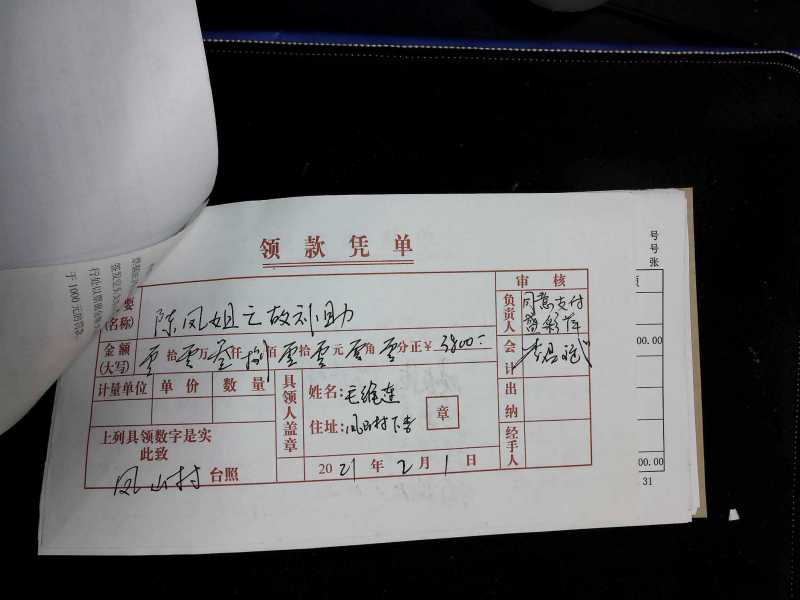 领款凭单
审核
要
(名称)
陈凤姐亡故补助
负责人
同意支付
金额
(大写)
零拾零万叁仟捌佰零拾零元零角零分正¥3800:-
会计
计量单位 单价 数量
具领人盖章
姓名:毛维莲
住址:凤山村下李
章
出纳
经手人
上列具领数字是实
此致
凤山村台照
2021年2月1日
号
号
张
00.00
00.00
31
行处以票据金额
于1000元的罚款